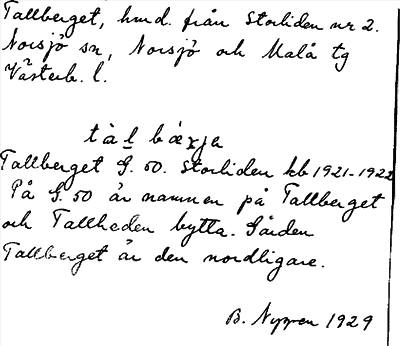 Tallberget, hmd. från Storliden nr 2.
Norsjö sn, Norsjö och Malå tg
Västerb. l.
Tallberget G. 50. Storliden kb 1921-1922
På G. 50 är namnen på Tallberget
och Tallheden bytta. Gården
Tallberget är den nordligare.
B. 1929